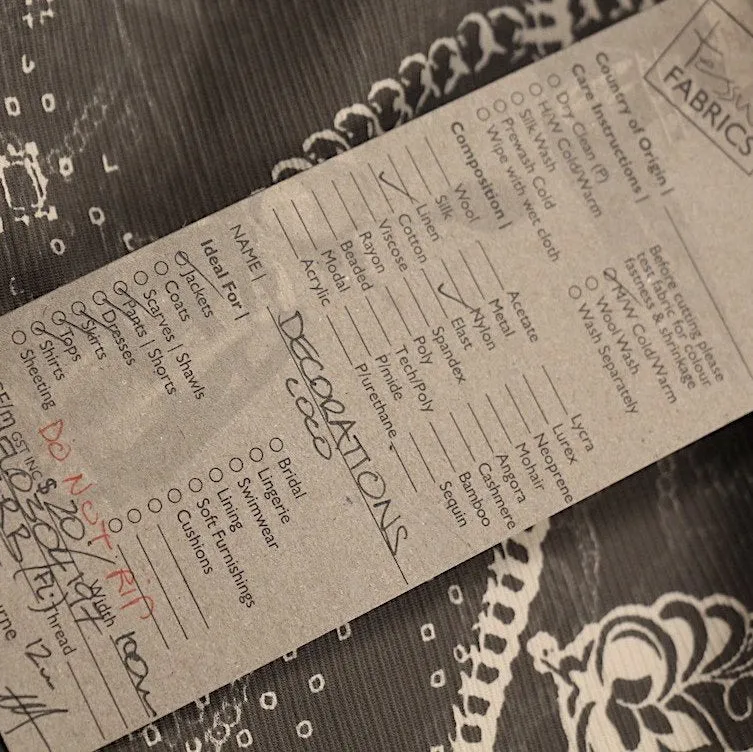 Tessuti
FABRICS
Country of Origin |
Care Instructions |
Dry Clean (P)
H/W Cold/Warm
Silk Wash
Prewash Cold
Wipe with wet cloth
Before cutting please
test fabric for colour
fastness & shrinkage
M/W Cold/Warm
Wool Wash
Wash Separately
Composition |
Wool
Silk
Linen
Cotton
Viscose
Rayon
Beaded
Modal
Acrylic
Acetate
Metal
Nylon
Elast
Spandex
Poly
Tech/Poly
P/mide
P/urethane
Lycra
Lurex
Neoprene
Mohair
Angora
Cashmere
Bamboo
Sequin
NAME |
DECORATIONS
COCO
Ideal For |
Jackets
Coats
Scarves | Shawls
Pants | Shorts
Dresses
Skirts
Tops
Shirts
Sheeting
Bridal
Lingerie
Swimwear
Lining
Soft Furnishings
Cushions
DO NOT RIP
GST INC $ 20.
Width
Thread
12m